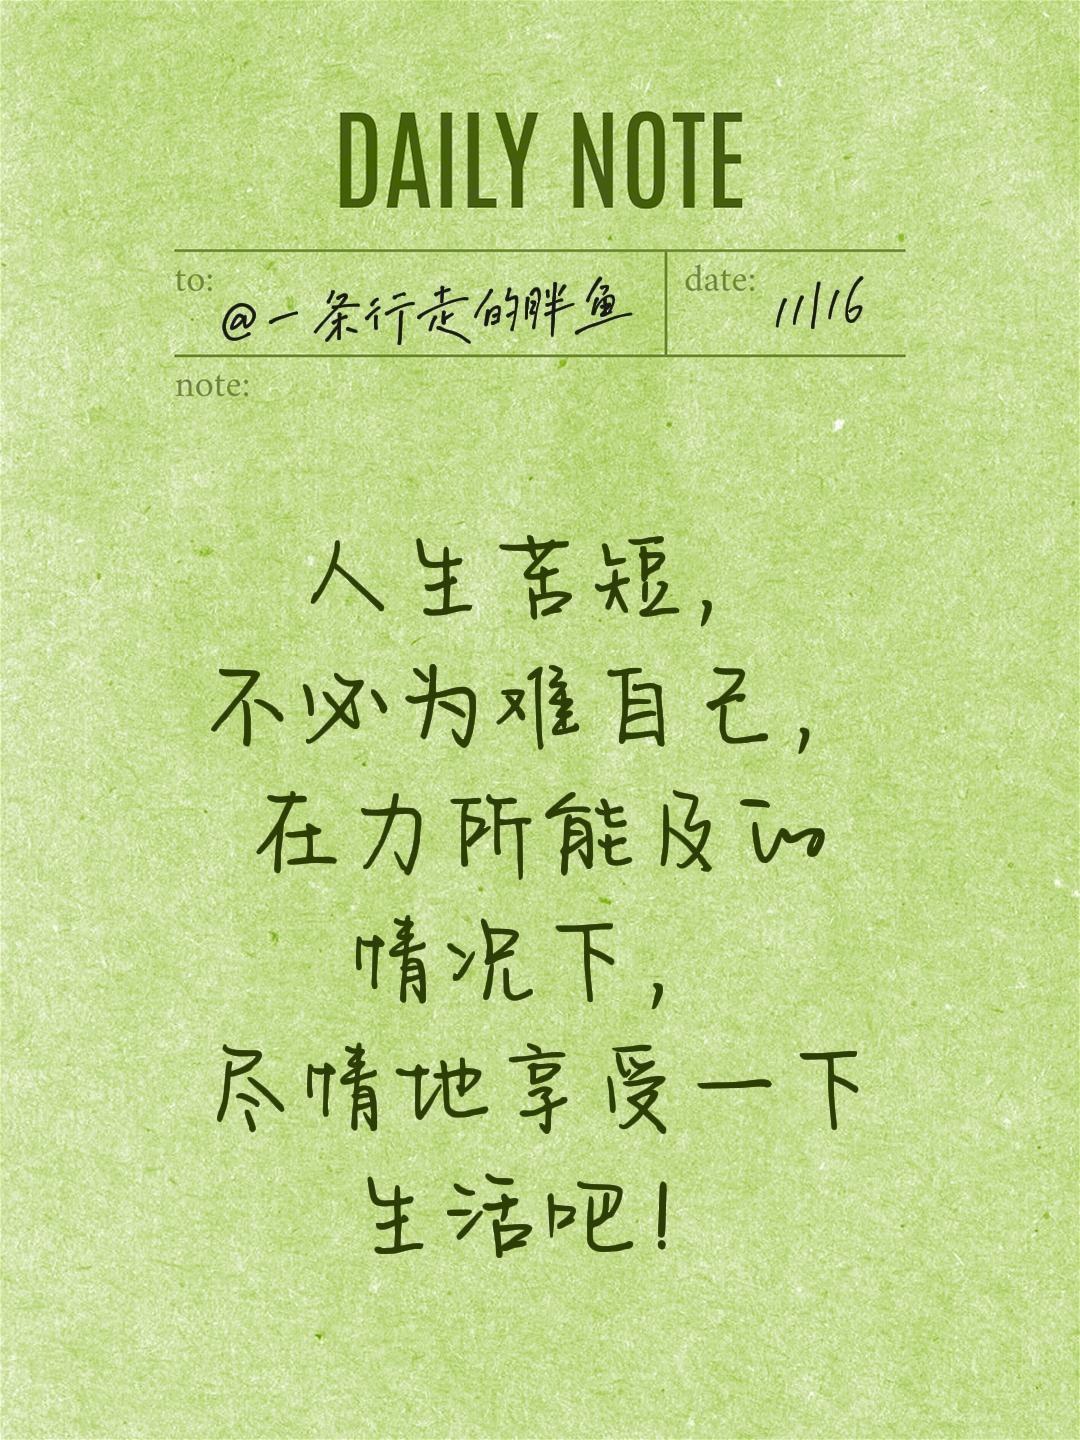 DAILY NOTE
to: @一条行走的胖鱼
date: 11/16
note:
人生苦短，
不必为难自己，
在力所能及的
情况下，
尽情地享受一下
生活吧！